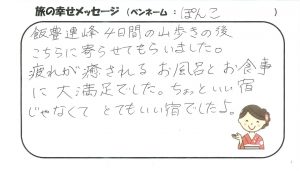 旅の幸せメッセージ (ペンネーム : ぽんこ )
飯豊連峰 4日間の山歩きの後
こちらに寄らせてもらいました。
疲れが癒される お風呂と お食事
に 大満足でした。ちょっといい宿
じゃなくて とてもいい宿でした♪。